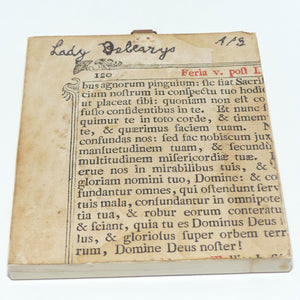 Lady
120 Feria v. post
bus agnorum pinguium: sic fiat Sacrifi
cium nostrum in conspectu tuo hodie
ut placeat tibi: quoniam non est co
fusio confidentibus in te. Et nunc
quimur te in toto corde, & timem
te, & quærimus faciem tuam. N
confundas nos: sed fac nobiscum jux
mansuetudinem tuam, & secundu
multitudinem misericordiæ tuæ. E
erue nos in mirabilibus tuis, &
gloriam nomini tuo, Domine: & co
fundantur omnes, qui ostendunt servi
tuis mala, confundantur in omnipote
tia tua, & robur eorum conteratu
& sciant, quia tu es Dominus Deus s
lus, & gloriosus super orbem terr
rum, Domine Deus noster!